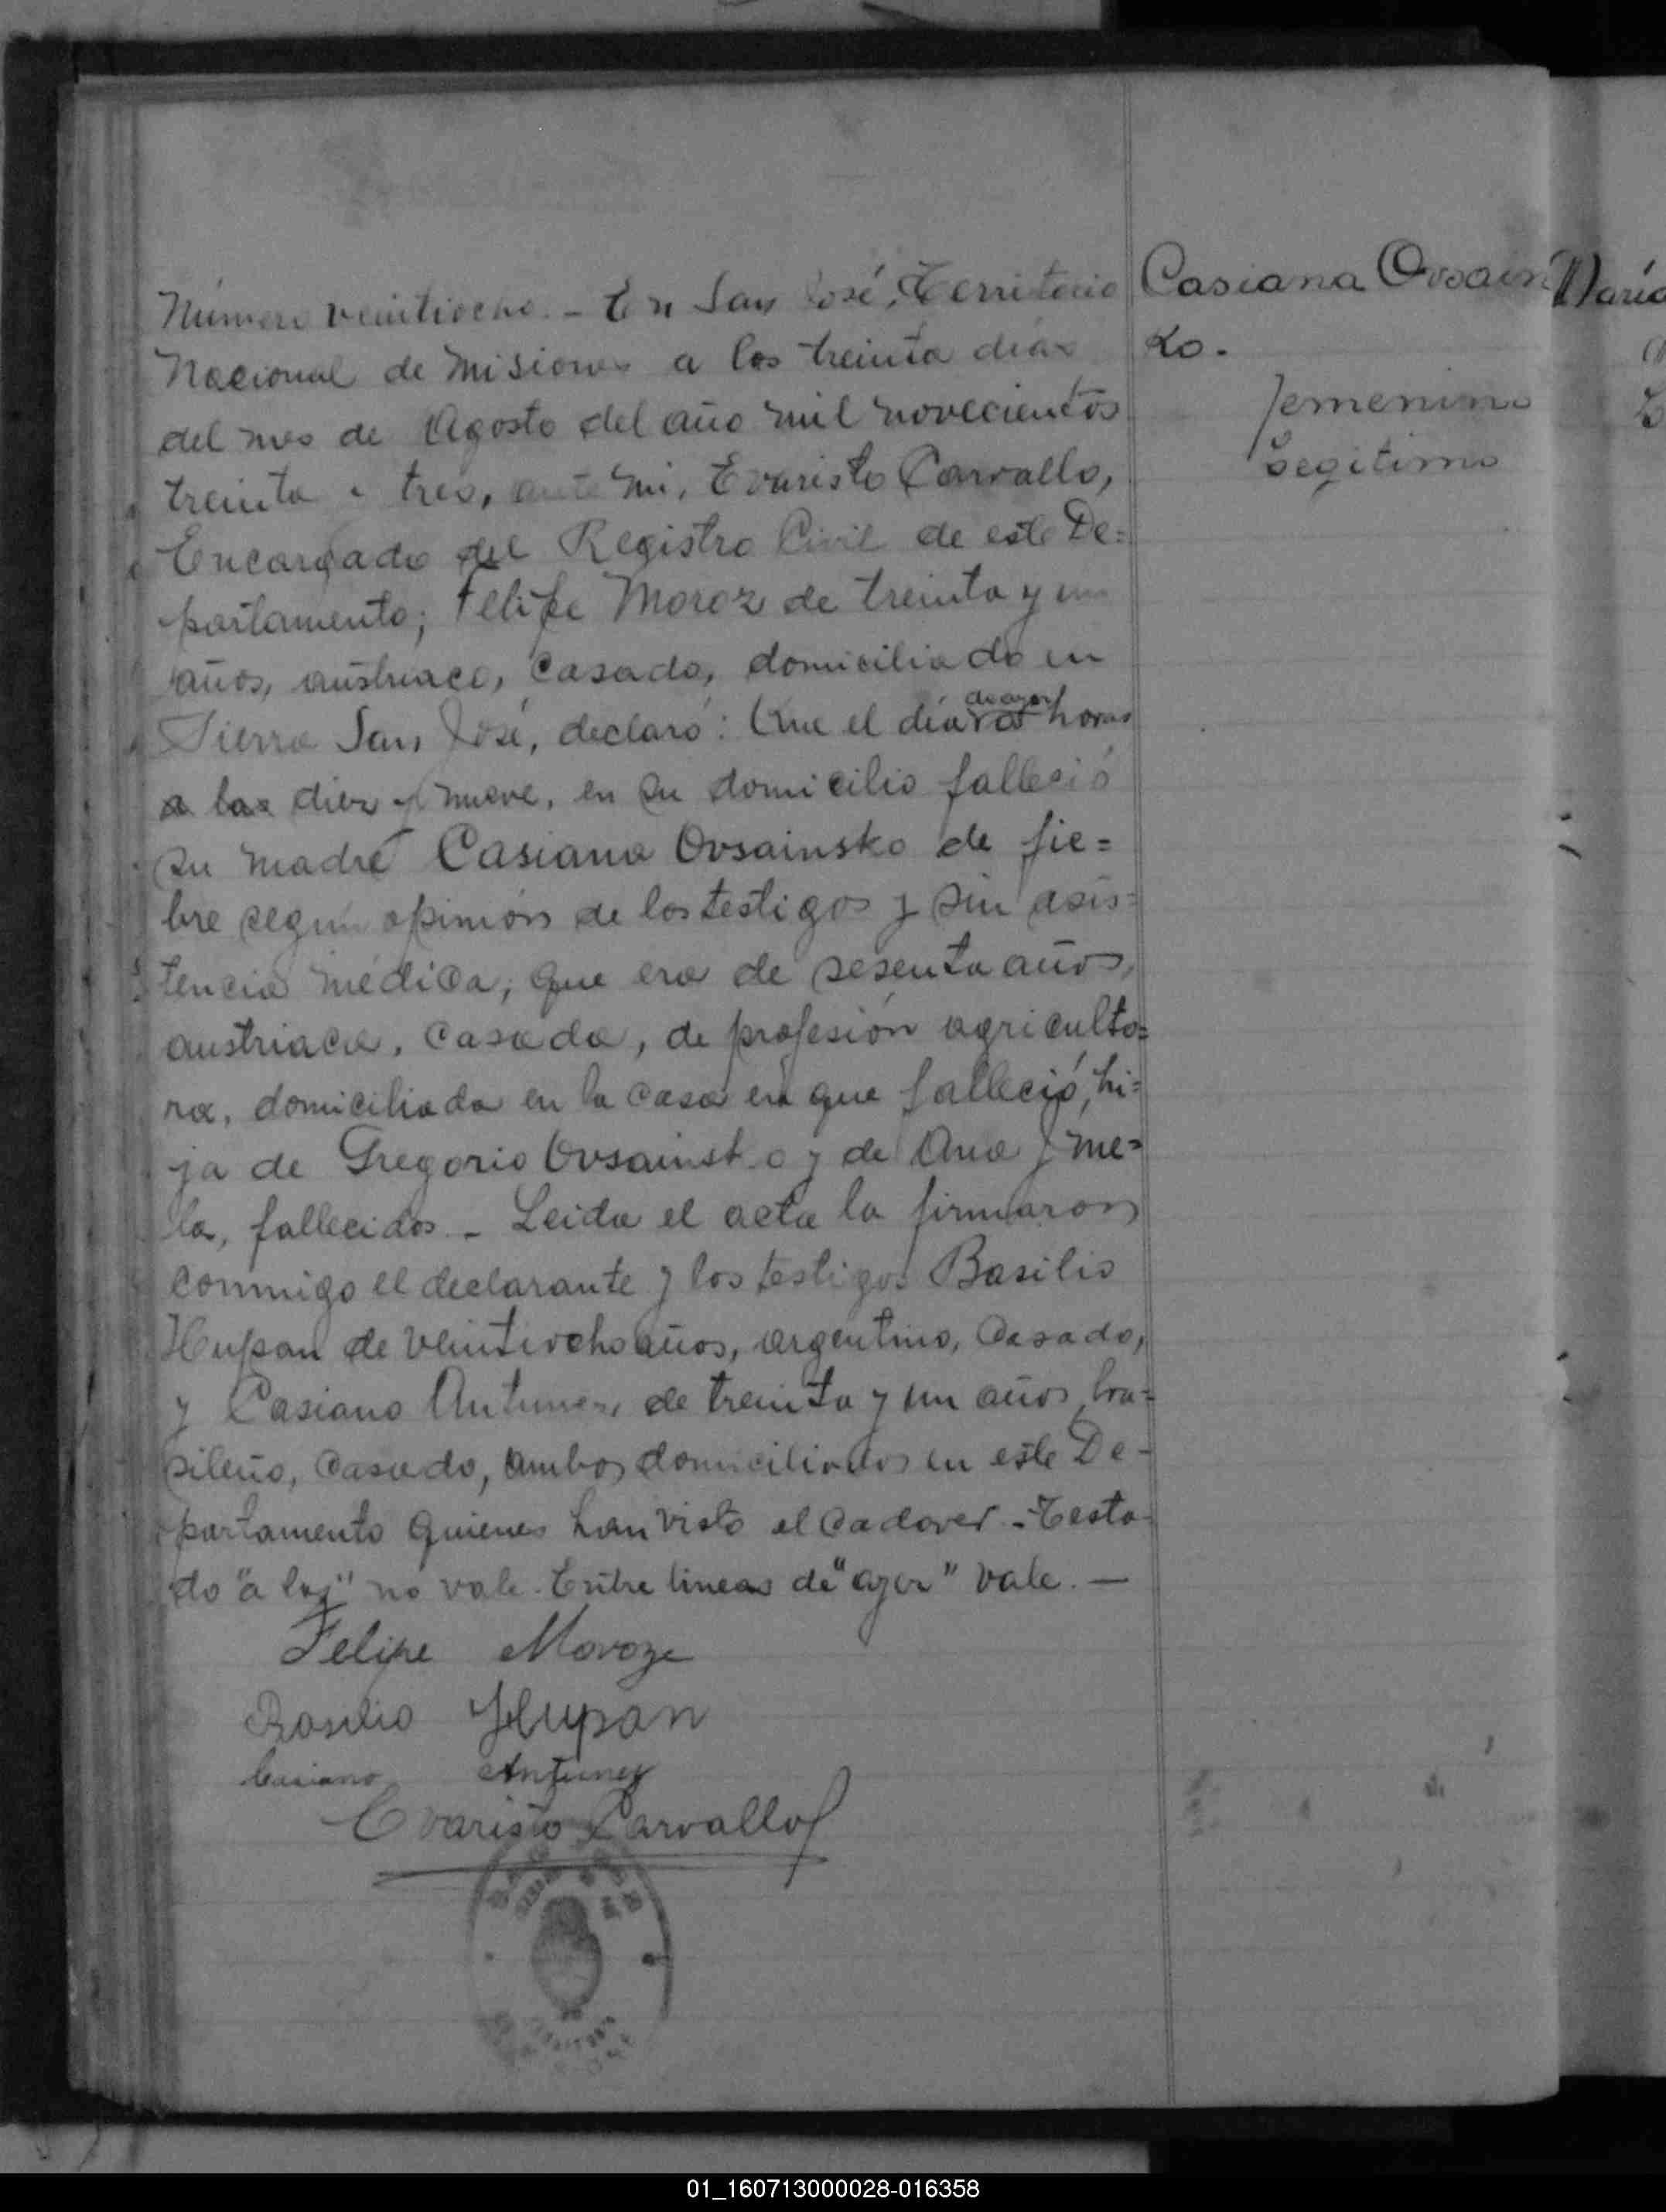 Número veintiocho. - En San José, Territorio
Nacional de Misiones a los treinta días
del mes de Agosto del año mil novecientos
treinta y tres, ante mi, Evaristo Carvallo,
Encargado del Registro Civil de este De=
partamento; Felipe Moroz de treinta y un
años, austriaco, Casado, domiciliado en
Sierra San José, declaró: Que el día de ayer horas
a las diez y nueve, en su domicilio falleció
su madre Casiana Ovsainsko de fie=
bre segun opinión de los testigos y sin asis=
tencia médica; que era de sesenta años,
austriaca, Casada, de profesión agriculto=
ra, domiciliada en la casa en que falleció, hi=
ja de Gregorio Ovsainsko y de Ana
la, fallecidos. - Leida el acta la firmaron
conmigo el declarante y los testigos Basilio
Hupan de veintiocho años, argentino, Casado,
y Casiano Antunez, de treinta y un años, bra=
sileño, Casado, ambos domiciliados en este De-
partamento quienes han visto el cadaver. - Testa-
do "a las" no vale. Entre lineas de "ayer" vale. —
Felipe Moroze
Basilio Hupan
Casiano Antunez
Evaristo Carvallo
Casiana Ovsain
ko.
femenino
Legitimo
María
01_160713000028-016358